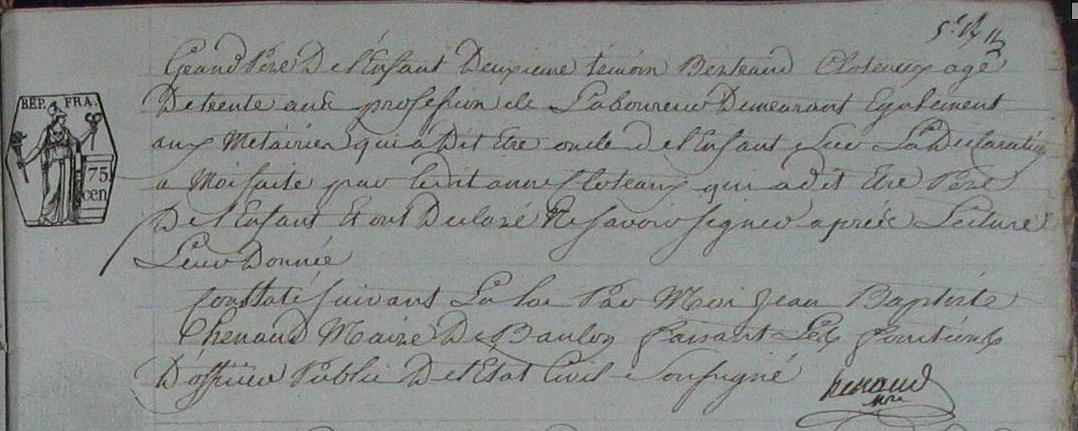 Grand Père De l'Enfant Deuxieme témoin Bertrand Cloteaux agé
De trente ans profession de Laboureur Demeurant Egalement
aux Metairies qui à Dit Etre oncle De l'Enfant Sur La Declaration
a Moi faite par ledit Cloteaux qui a dit Etre Père
De l'Enfant Et ont Declaré Ne Savoir Signer après Lecture
Leur Donnée
Constaté Suivant La Loi Par Moi Jean Baptiste
Chenaud Maire De Baulon faisant Les fonctions
D'officier Public De l'Etat Civil Soussigné
REP. FRA.
75
cen